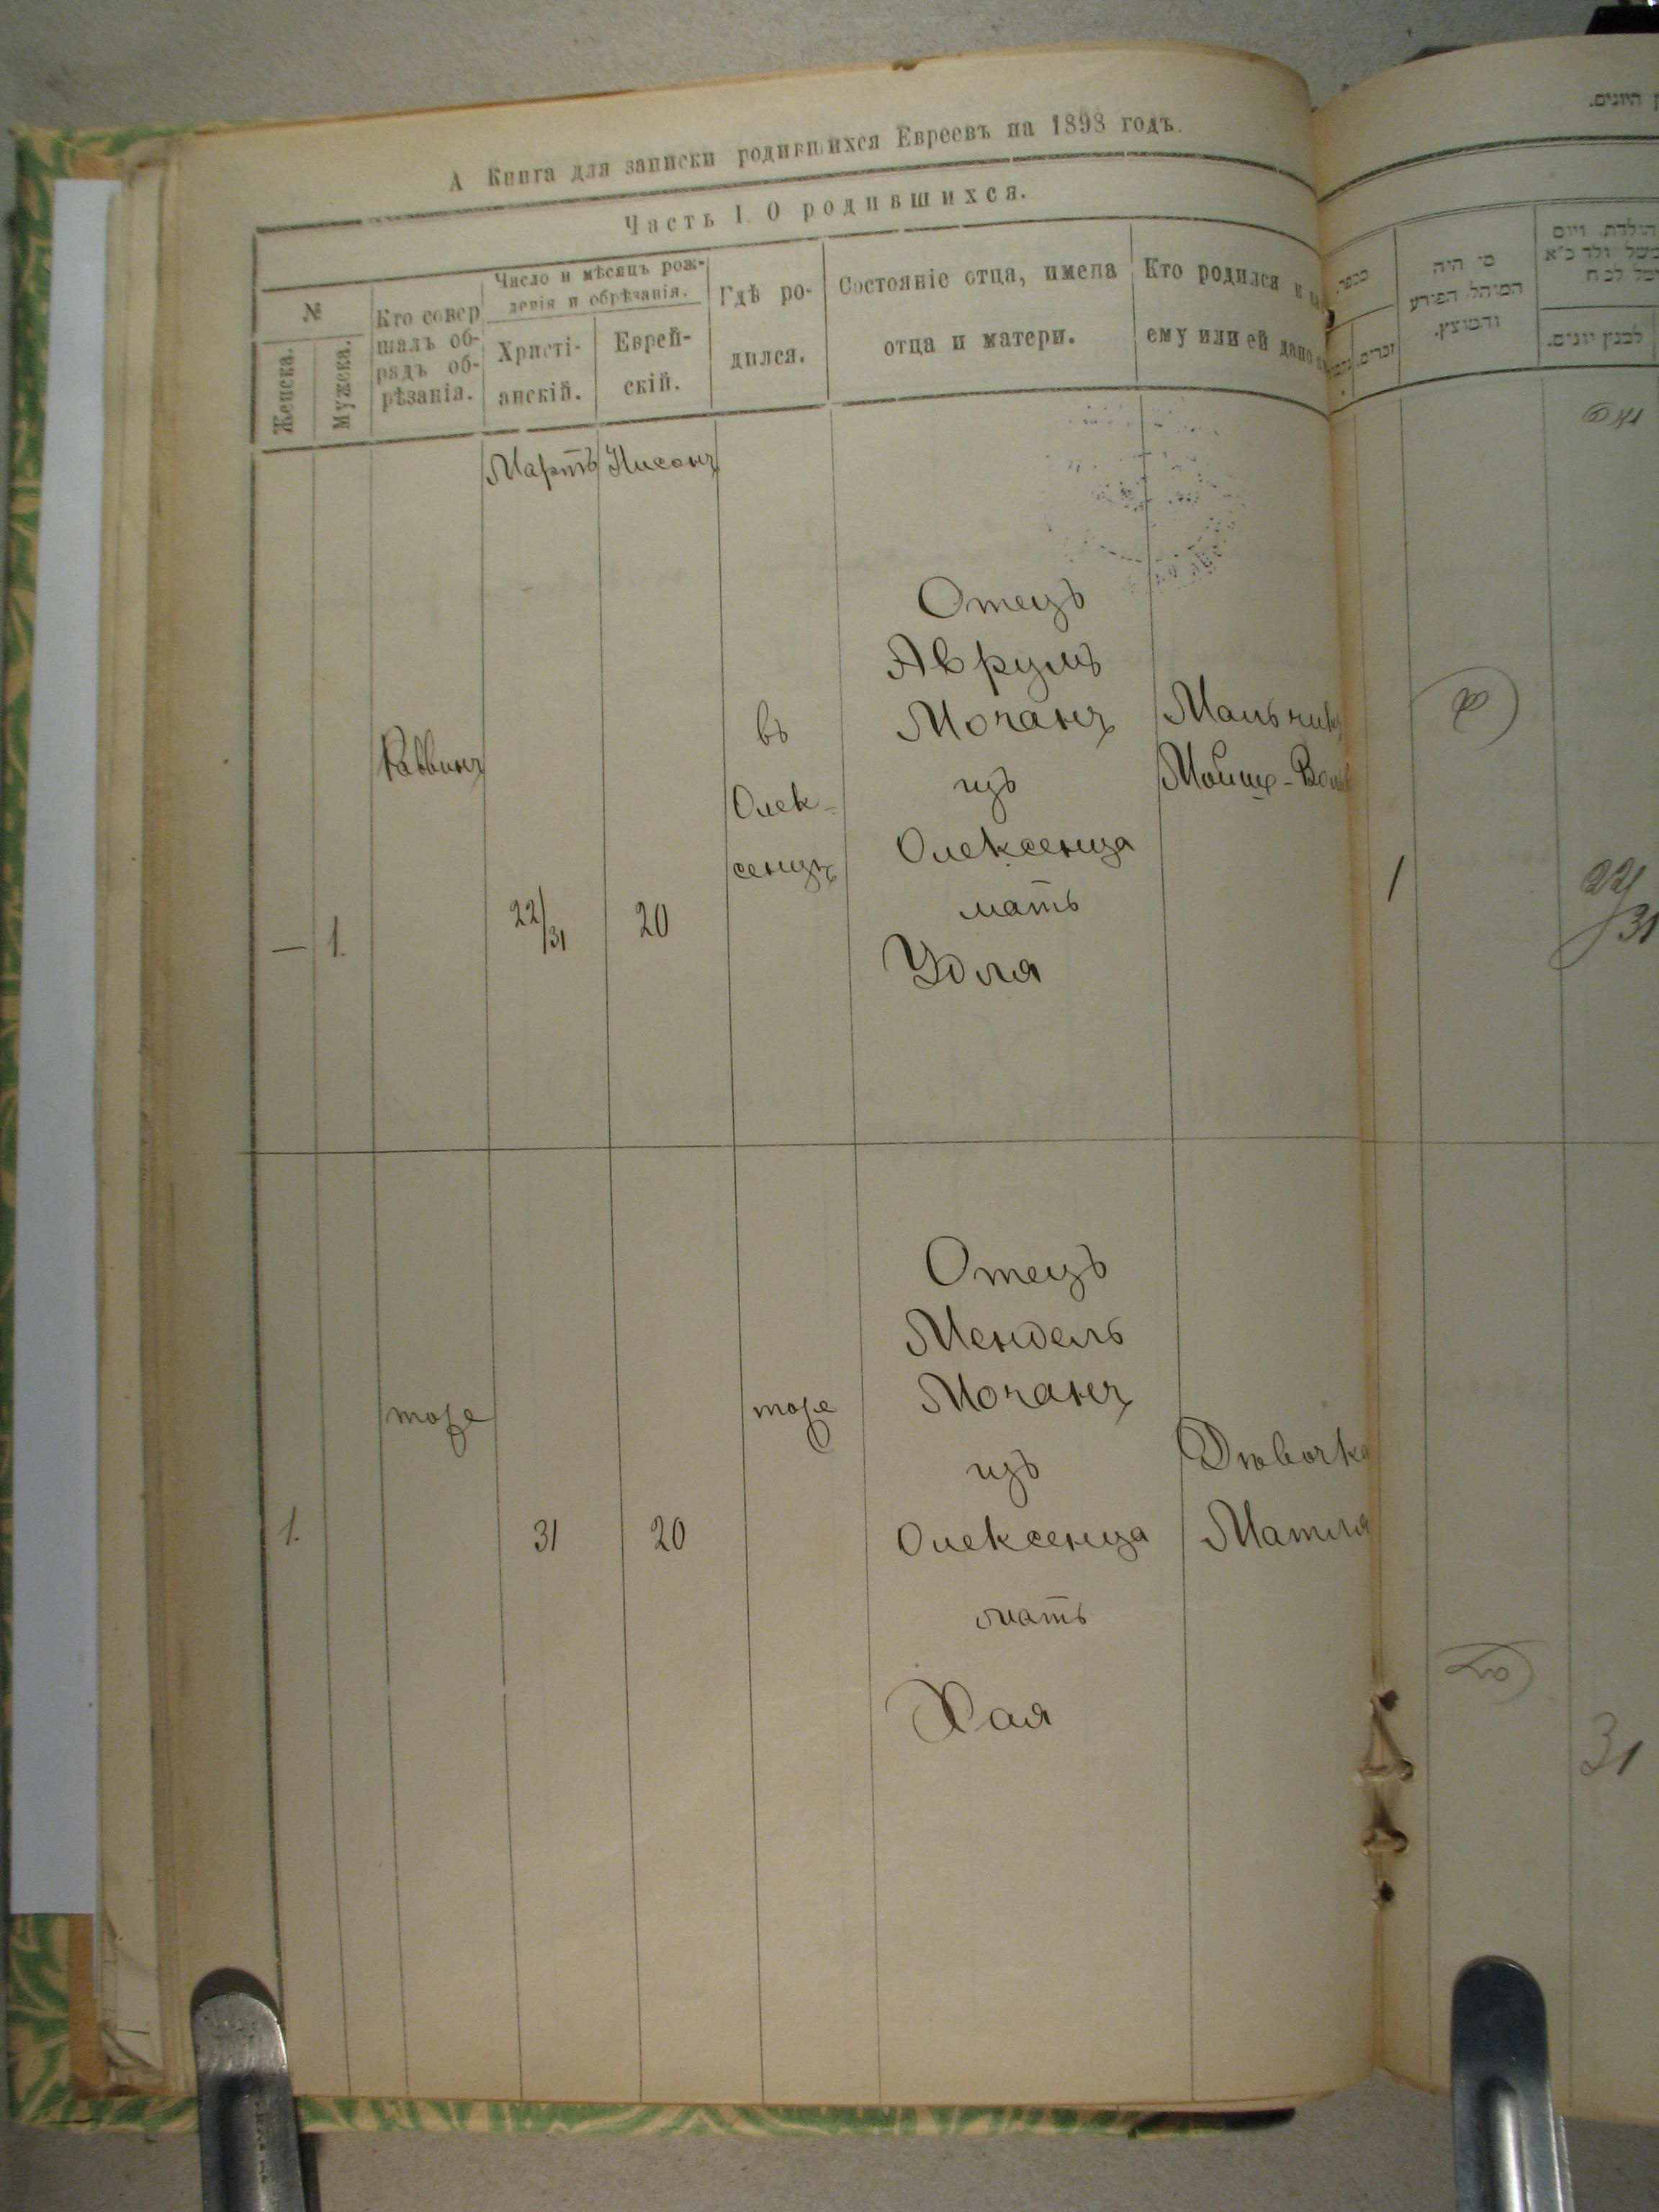 А Книга для записки родившихся Евреевъ на 1898 годъ.
Часть I. О родившихся.
№
Женска.
Мужска.
Кто совер
шалъ об-
рядъ об-
рѣзанія.
Число и мѣсяцъ рож-
денія и обрѣзанія.
Христі-
анскій.
Еврей-
скій.
Гдѣ ро-
дился.
Состояніе отца, имена
отца и матери.
Кто родился и
ему или ей дано
Мартъ
Нисонъ
—
1.
Раввинъ
22/31
20
въ
Олек-
сенцѣ
Отецъ
Аврумъ
Мочанъ
изъ
Олексенца
мать
Удля
Мальчикъ
Мойше-Вольф
1.
тоже
31
20
тоже
Отецъ
Мендель
Мочанъ
изъ
Олексенца
мать
Хая
Дѣвочка
Матля
מי היה
המוהל הפורע
והמוצץ.
זכרים.
למנין יונים.
1
22/31
31